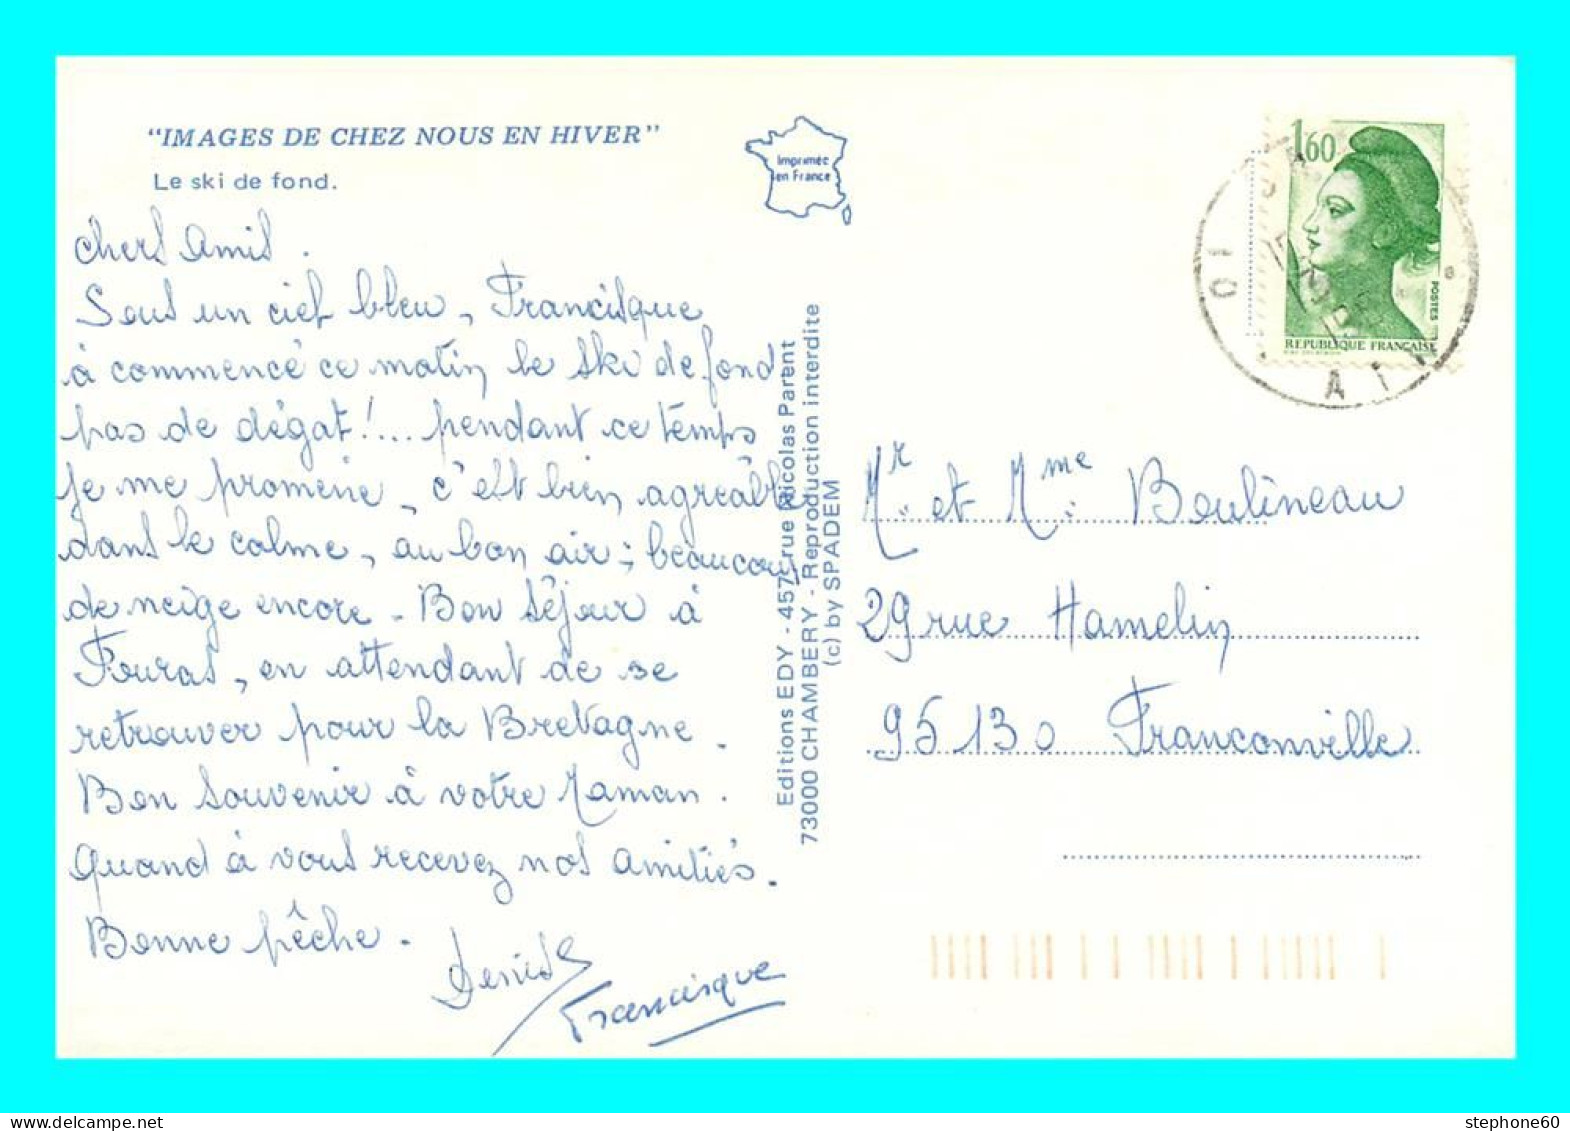 "IMAGES DE CHEZ NOUS EN HIVER"
Le ski de fond.
Imprimée
en France
chers Amis.
Sous un ciel bleu, Francisque
à commencé ce matin le ski de fond
pas de dégat!... pendant ce temps
je me promène, c'est bien agréable
dans le calme, au bon air; beaucoup
de neige encore. Bon séjour à
Fouras, en attendant de se
retrouver pour la Bretagne.
Bon souvenir à votre Maman.
Quand à vous recevez nos amitiés.
Bonne pêche.
Denise
Francisque
Editions EDY - 457, rue Nicolas Parent
73000 CHAMBERY - Reproduction interdite
(c) by SPADEM
1,60
POSTES
REPUBLIQUE FRANÇAISE
01
AIN
Mr. et Mme. Boulineau
29 rue Hamelin
95130 Franconville
stephone60